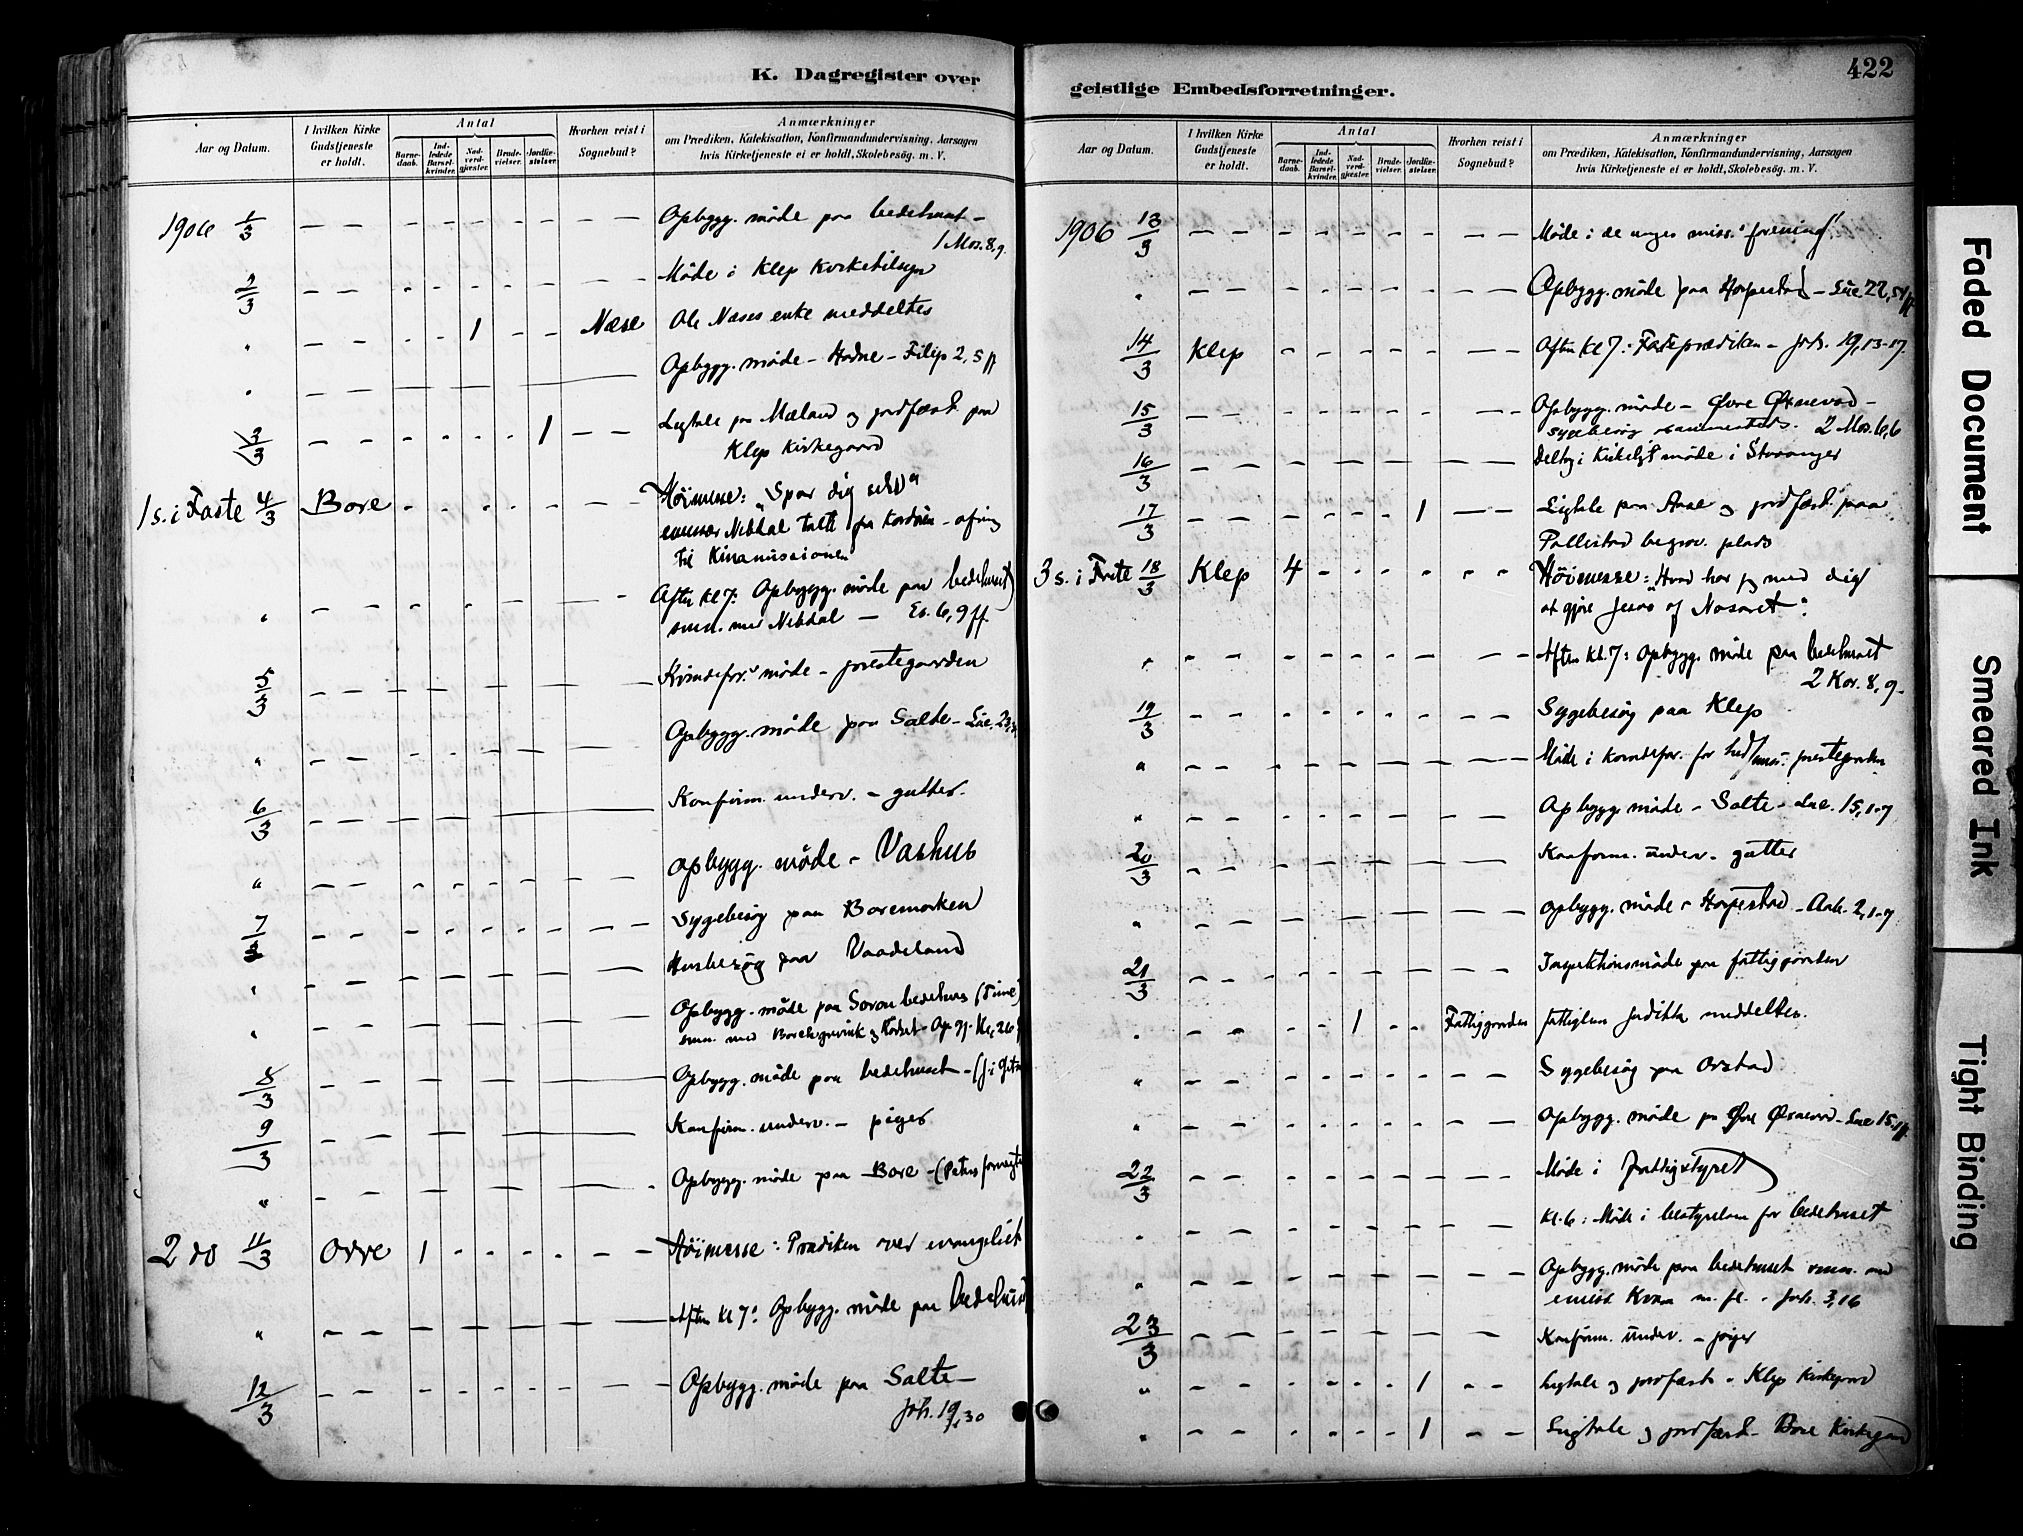 K. Dagregister over
Aar og Datum.
I hvilken Kirke Gudstjeneste er holdt.
Antal
Barne-daab.
Ind-ledede Barsel-kvinder.
Nad-verd-gjæster.
Brude-vielser.
Jordfæ-stelser.
Hvorhen reist i Sognebud?
Anmærkninger
om Prædiken, Katekisation, Konfirmandundervisning, Aarsagen
hvis Kirketjeneste ei er holdt, Skolebesög. m. V.
1906 1/3 Opbygg. møde paa bedehuset -
1 Mos. 8,9.
2/3 Møde i Klep Kirketilsyn
" 1 Næse Ole Næses enke meddeltes
" Opbygg. møde - Hodne - Filip 2,5 ff
3/3 1 Ligtale paa Mæland og jordfæst. paa
Klep Kirkegaard
1 s. i Faste 4/3 Bore Høimesse: "Spar dig selv"
emissær Nebdal talte fra Kordøren - ofring
til Kinamissionen
" Aften Kl 7: Opbygg. møde paa bedehuset
smn. med Nebdal - Es. 6,9 ff.
5/3 Kvindefor. møde - prestegaarden
" Opbygg. møde paa Salte - Luc. 23,
6/3 Konfirm. underv. - gutter.
" opbygg. møde - Vashus
7/3 Sygebesøg paa Boremarken
" Husbesøg paa Vaadeland
" Opbygg. møde paa bedehus (Time)
8/3 Opbygg. møde paa bedehuset - (J. i Getse
9/3 Konfirm. underv. - piger
" Opbygg. møde paa Bore - (Peters fornegte
2 do 11/3 Orre 1 Høimesse: Prædiken over evangeliet
" Aften Kl 7: Opbygg. møde paa bedehuset
12/3 Opbygg. møde paa Salte -
Joh. 19,30
422
geistlige Embedsforretninger.
Aar og Datum.
I hvilken Kirke Gudstjeneste er holdt.
Antal
Barne-daab.
Ind-ledede Barsel-kvinder.
Nad-verd-gjæster.
Brude-vielser.
Jordfæ-stelser.
Hvorhen reist i Sognebud?
Anmærkninger
om Prædiken, Katekisation, Konfirmandundervisning, Aarsagen
hvis Kirketjeneste ei er holdt, Skolebesög. m. V.
1906 13/3 Møde i de unges miss. forening
" Opbygg. møde paa Horpestad - Luc 22,54 ff
14/3 Klep Aften Kl 7: Fasteprædiken - Joh. 19,13-17.
15/3 Opbygg. møde - Øvre Øxnevad -
sygebesøg sammesteds. 2 Mos. 6,6
16/3 Deltog i Kirkeligt møde i Stavanger
17/3 1 Ligtale paa Aase og jordfæst. paa
Pollestad begrav. plads
3 s. i Faste 18/3 Klep 4 Høimesse: Hvad har jeg med dig
at gjøre Jesus af Nasaret".
" Aften Kl. 7: Opbygg. møde paa bedehuset
2 Kor. 8,9.
19/3 Sygebesøg paa Klep
" Møde i Kvindefor. for hed/miss. prestegarden
" Opbygg. møde - Salte - Luc. 15,1-7
20/3 Konfirm. underv. gutter
" opbygg. møde - Horpestad - Aab. 2,1-7
21/3 Inspektionsmøde paa fattiggaarden
" 1 Fattiggaarden fattiglem meddeltes.
" Sygebesøg paa Orstad
" Opbygg. møde paa Øvre Øxnevad - Luc 15,1 ff.
22/3 Møde i Fattigstyret
" Kl. 6: Møde i bestyrelsen for bedehuset
" Opbygg. møde paa bedehuset smn. med
emiss Kvam m. fl. - Joh. 3,16
23/3 Konfirm. underv. - piger
" 1 Ligtale og jordfæst - Klep Kirkegaard
" 1 Ligtale og jordfæst. Bore Kirkegaard
Faded Document
Smeared Ink
Tight Binding